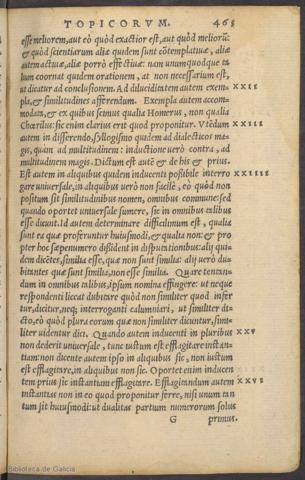 TOPICORVM. 465
esse meliorem, aut eò quòd exactior est, aut quòd meliorũ:
& quòd scientiarum aliæ quidem sunt cõtemplatiuæ, aliæ
autem actiuæ, aliæ porrò effectiuæ: nam unumquodque ta
lium coornat quidem orationem, at non necessarium est,
ut dicatur ad conclusionem. Ad dilucidatem autem exem- XXII
pla, & similitudines afferendum. Exempla autem accom-
modata, & ex quibus scimus qualia Homerus, non qualia
Chœrilus: sic enim clarius erit quod proponitur. Vtẽdum XXIII
autem in disserendo, syllogismo quidem ad dialecticos ma-
gis, quàm ad multitudinem: inductione uerò contra, ad
multitudinem magis. Dictum est autẽ & de his & prius.
Est autem in aliquibus quidem inducenti possibile interro XXIIII
gare uniuersale, in aliquibus uerò non facilè, eò quòd non
positum sit similitudinibus nomen, omnibus commune: sed
quando oportet uniuersale sumere, sic in omnibus talibus
esse dicunt. Id autem determinare difficilimum est, qualia
sunt ea quæ proferuntur huiusmodi, & qualia non: & pro
pter hoc sæpenumero dissident in disputationibus: alij qui-
dem dicẽtes, similia esse, quæ non sunt similia: alij uerò du-
bitantes quæ sunt similia, non esse similia. Quare tentan-
dum in omnibus talibus, ipsum nomina effingere: ut neque
respondenti liceat dubitare quòd non similiter quod infer
tur, dicitur, neq; interroganti calumniari, ut similiter di-
cto, eò quòd plura eorum quæ non similiter dicuntur, simi-
liter uidentur dici. Quando autem inducenti in pluribus XXV
non dederit uniuersale, tunc iustum est efflagitare instan-
tiam: non dicente autem ipso in aliquibus sic, non iustum
est efflagitare, in aliquibus non sic. Oportet enim inducen
tem prius sic instantiam efflagitare. Efflagitandum autem XXVI
instantias non in eo quod proponitur ferre, nisi unum tan
tum sit huiusmodi: ut dualitas partium numerorum solus
G primus.
Biblioteca de Galicia